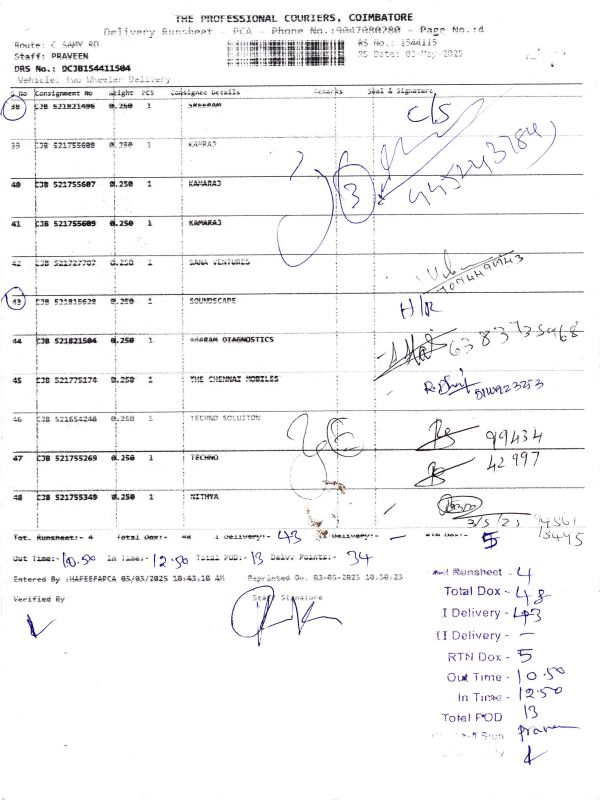 THE PROFESSIONAL COURIERS, COIMBATORE
Delivery Runsheet - PCA - Phone No.:9047080280 - Page No.:4
Route: C SAMY RD RS No.: 1544115
Staff: PRAVEEN RS Date: 03-May-2025
DRS No.: DCJB154411504
Vehicle: Two Wheeler Delivery
S No Consignment No Weight PCS Consignee Details Remarks Seal & Signature
38 CJB 521821496 0.250 1 SREERAM C/S
39 CJB 521755608 0.250 1 KAMRAJ
40 CJB 521755607 0.250 1 KAMARAJ 3
41 CJB 521755609 0.250 1 KAMARAJ
42 CJB 521727707 0.250 1 SANA VENTURES
43 CJB 521815628 0.250 1 SOUNDSCAPE H/R
44 CJB 521821504 0.250 1 AGARAM DIAGNOSTICS
45 CJB 521775174 0.250 1 THE CHENNAI MOBILES
46 CJB 521654248 0.250 1 TECHNO SOLUITON 99434
47 CJB 521755269 0.250 1 TECHNO 42997
48 CJB 521755349 0.250 1 NITHYA
3/5/25
Tot. Runsheet:- 4 Total Dox:- 48 I Delivery:- 43 II Delivery:- - RTN Dox:- 5
Out Time:- 10.50 In Time:- 12.50 Total POD:- 13 Delvy Points:- 34
Entered By :HAFEEFAPCA 05/03/2025 10:43:18 AM Reprinted On: 03-05-2025 10:50:23
Verified By Staff Signature
Runsheet - 4
Total Dox - 48
I Delivery - 43
II Delivery - -
RTN Dox - 5
Out Time - 10.50
In Time - 12.50
Total POD 13
Sign Praveen